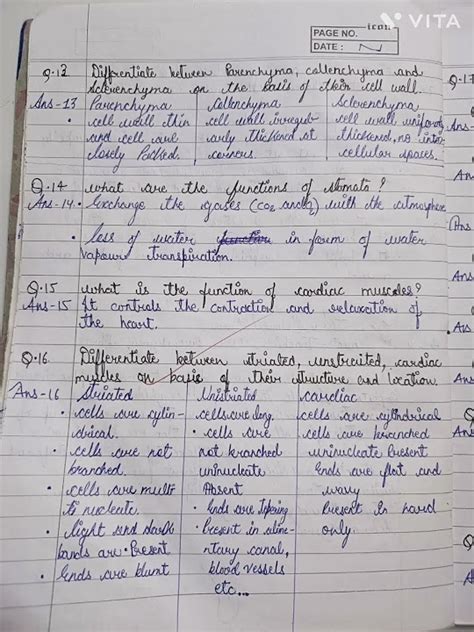 VITA
icon
PAGE NO.
DATE :
Q.13 Differentiate between Parenchyma, collenchyma and
Sclerenchyma on the basis of their cell wall.
Ans-13 Parenchyma Collenchyma Sclerenchyma
• cell wall thin cell wall irregul- cell wall uniformly
and cell are arly thickened at thickened, no inter
loosely Packed. corners. cellular spaces.
Q.14 what are the functions of stomata?
Ans-14. • Exchange the gases (CO2 and O2) with the atmosphere
• loss of water function in form of water
vapour transpiration.
Q.15 what is the function of cardiac muscles?
Ans-15 It controls the contraction and relaxation of
the heart.
Q.16 Differentiate between striated, unstraited, cardiac
muscles on basis of their structure and location.
Ans-16 Striated Unistriated cardiac
• cells are cylin- cells are long. cells are cylindrical
drical. • cells are cells are branched
• cells are not not branched uninucleate Present
branched. uninucleate Ends are flat and
• cells are multi Absent wavy
ti nucleate. • Ends are Tapering Present in
• light and dark • Present in alime- only.
bands are Present ntary canal,
• Ends are blunt blood vessels
etc...
Q.17
Ans
Ans
Q